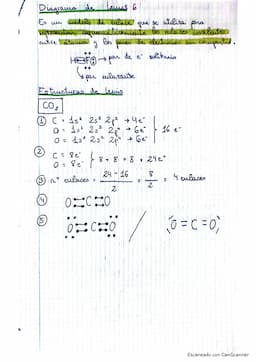 Diagrama de Lewis 6
Es un modelo de enlace que se utiliza para
representar los enlaces covalentes
entre átomos y los
H–F → par de e⁻ solitario
↳ par enlazante
Estructuras de Lewis
CO₂
① C = 1s² 2s² 2p² → 4e⁻
O = 1s² 2s² 2p⁴ → 6e⁻ } 16 e⁻
O = 1s² 2s² 2p⁴ → 6e⁻
② C = 8e⁻
O = 8e⁻ } 8 + 8 + 8 = 24e⁻
③ nº enlaces = 24 - 16 / 2 = 8 / 2 = 4 enlaces
④ O::C::O
⑤ O::C::O / O = C = O
Escaneado con CamScanner